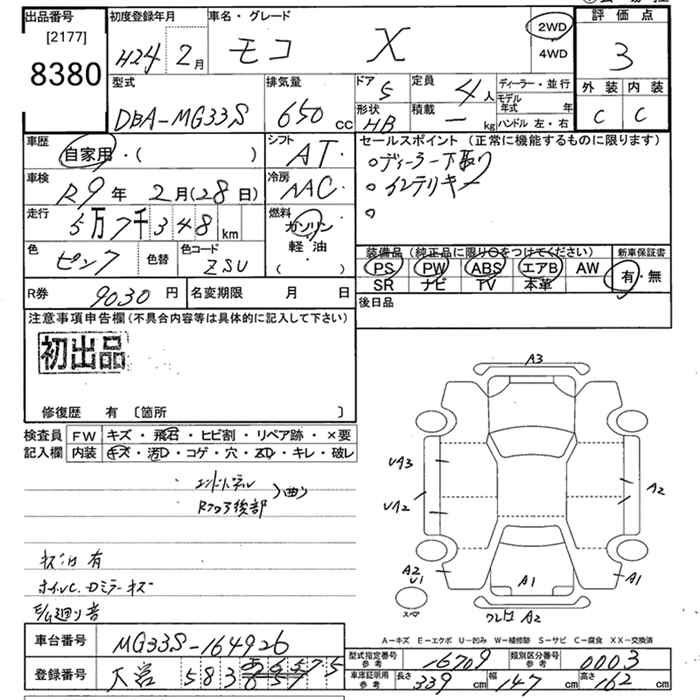 出品番号
[2177]
8380
初度登録年月
H24 2月
車名・グレード
モコ X
2WD
4WD
評価点
3
外装 内装
C C
型式
DBA-MG33S
排気量
650 CC
ドア 5
形状 HB
定員 4人
積載 - kg
ディーラー・並行
モデル年式 年
ハンドル 左・右
車歴
自家用・( )
シフト
AT
セールスポイント (正常に機能するものに限ります)
○ディーラー下取り
○インテリキー
○
車検
R9年 2月(28日)
冷房
AAC
走行
5万7千348km
燃料
ガソリン
軽油
( ・ )
色
ピンク
色替
色コード
ZSU
装備品 (純正品に限り○をつけてください)
PS PW ABS エアB AW
SR ナビ TV 本革
新車保証書
有・無
R券 9030円
名変期限 月 日
後日品
注意事項申告欄(不具合内容等は具体的に記入して下さい)
初出品
修復歴 有 〔箇所 〕
検査員
記入欄
FW キズ・飛石・ヒビ割・リペア跡・×要
内装 キズ・汚D・コゲ・穴・ZD・キレ・破レ
Rクォタ後部
キズ凹有
ホイルC.Dミラーキズ
A3
UA3
UA2
A2
A2
U1
A1
A1
スペア
A2
A-キズ E-エクボ U-凹み W-補修跡 S-サビ C-腐食 XX-交換済
車台番号
MG33S-164926
登録番号
583
型式指定番号
参考
16709
類別区分番号
参考
0003
車庫証明用
参考
長さ 339cm
幅 147cm
高さ 162cm